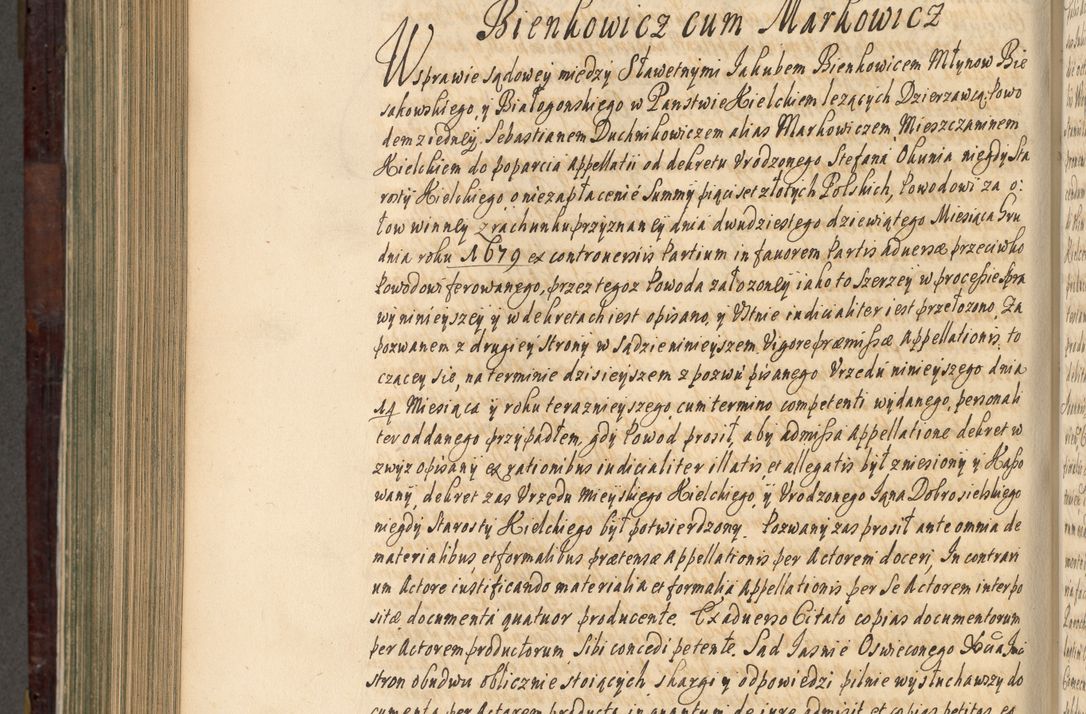 Bienkowicz cum Markowicz
W sprawie sądowey między Sławetnymi Jakubem Bienkowicem Młynow Bie
sakowskiego, y Białogonskiego w Panstwie Kielckiem lezących Dzierzawcą, Powo
dem z iedney, Sebastianem Duchnikowiczem alias Markowiczem, Mieszczaninem
Kielckiem do poparcia Appellatii od dekretu Vrodzonego Stefana Okunia niegdy Sta
rosty Kielckiego, o niezapłacenié Summy pięciset złotych Polskich, Powodowi za o:
łow winney z rachunku przyznaney dnia dwudziestego dziewiątego Miesiąca Gru
dnia roku 1679 ex controversiis Partium in favorem Partis adversæ przeciwko
Powodowi ferowanego, przez tegoz Powoda załozoney iako to szerzey w processie spra
wy ninieyszey y w dekretach iest opisano, y Vstnie iudicialiter iest przełozono, Za
pozwanem z drugiey strony w Sądzie ninieyszem Vigore præmissæ Appellationis to
czącey się, na terminie dzisieyszem z pozwu pisanego Vrzędu ninieyszego dnia
14 Miesiąca y roku terazniejszego cum termino competenti wydanego, personali
ter oddanego przypadłem, gdy Powod prosił, aby admissa Appellatione dekret w
zwyz opisany ex rationibus iudicialiter illatis, et allegatis był zniesiony y Kasso
wany, dekret zas Vrzędu Mieyskiego Kielckiego, y Vrodzonego Jana Dobrosielskiego
niegdy Starosty Kielckiego był potwierdzony. Pozwany zas prosił ante omnia de
materialibus, et formalibus prætensæ Appellationis per Actorem doceri, In contrari
um Actore iustificando materialia et formalia Appellationis per se Actorem interpo
sitæ documenta quatuor producente. Ex adverso Citato copias documentorum
per Actorem productorum, Sibi concedi petente. Sąd Jasnie Oswieconego
stron obudwu oblicznie stoiących skargi y odpowiedzi pilnie wysłuchawszy do
cumenta per Actorem producta in quantum de iure admisit et copias petitas ex